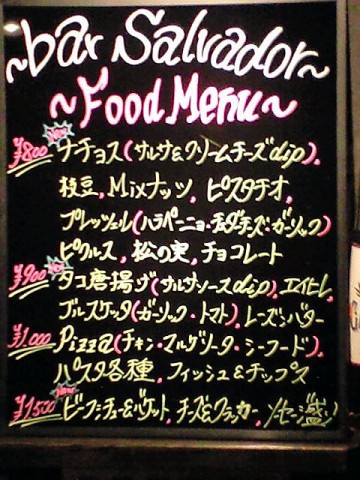 ~bar Salvador~
~Food Menu~
¥800 New ナチョス(サルサ&クリームチーズdip),
枝豆, Mixナッツ, ピスタチオ,
プレッツェル(ハラペーニョ・チェダチーズ・ガーリック)
ピクルス, 松の実, チョコレート
¥900 New タコ唐揚げ(サルサソースdip), エイヒレ,
ブルスケッタ(ガーリック・トマト), レーズンバター
¥1,000 Pizza(チキン・マルゲリータ・シーフード),
パスタ各種, フィッシュ&チップス
¥1500 New ビーフシチュー&バゲット, チーズ&クラッカー, ソーセージ盛り